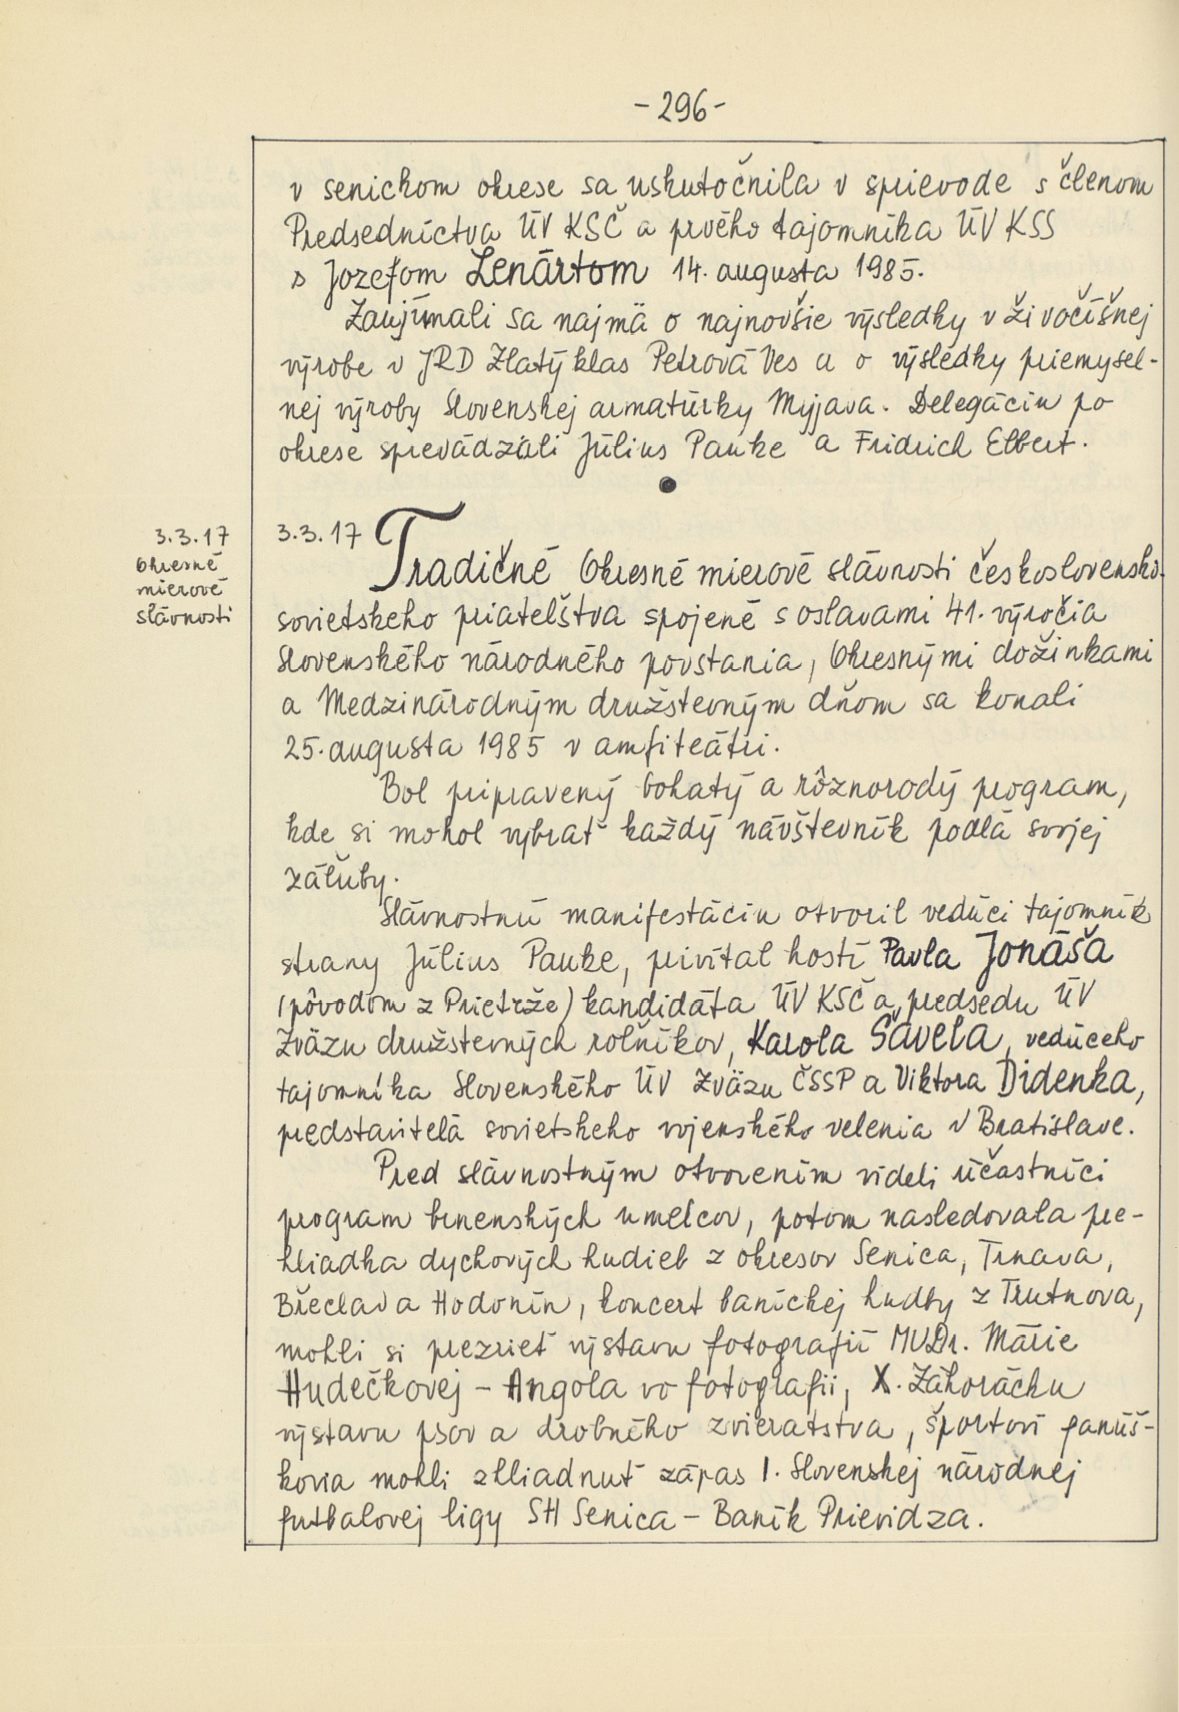 -296-
v senickom okrese sa uskutočnila v sprievode s členom
Predsedníctva ÚV KSČ a prvého tajomníka ÚV KSS
s Jozefom Lenártom 14. augusta 1985.
Zaujímali sa najmä o najnovšie výsledky v živočíšnej
výrobe v JRD Zlatý klas Petrová Ves a o výsledky priemysel-
nej výroby Slovenskej armatúrky Myjava. Delegáciu po
okrese sprevádzali Július Pauke a Fridrich Elbert.
3.3.17
Okresné
mierové
slávnosti
3.3.17 Tradičné Okresné mierové slávnosti československo-
sovietskeho priateľstva spojené s oslavami 41. výročia
Slovenského národného povstania, Okresnými dožinkami
a Medzinárodným družstevným dňom sa konali
25. augusta 1985 v amfiteátri.
Bol pripravený bohatý a rôznorodý program,
kde si mohol vybrať každý návštevník podľa svojej
záľuby.
Slávnostnú manifestáciu otvoril vedúci tajomník
strany Július Pauke, privítal hostí Pavla Jonáša
(pôvodom z Prietrže) kandidáta ÚV KSČ a predsedu ÚV
Zväzu družstevných roľníkov, Karola Šavela, vedúceho
tajomníka Slovenského ÚV Zväzu ČSSP a Viktora Didenka,
predstaviteľa sovietskeho vojenského velenia v Bratislave.
Pred slávnostným otvorením videli účastníci
program brnenských umelcov, potom nasledovala pre-
hliadka dychových hudieb z okresov Senica, Trnava,
Břeclav a Hodonín, koncert baníckej hudby z Trutnova,
mohli si prezrieť výstavu fotografií MUDr. Márie
Hudečkovej - Angola vo fotografii, X. Záhorácku
výstavu psov a drobného zvieratstva, športoví fanúš-
kovia mohli zhliadnuť zápas I. Slovenskej národnej
futbalovej ligy SH Senica - Baník Prievidza.